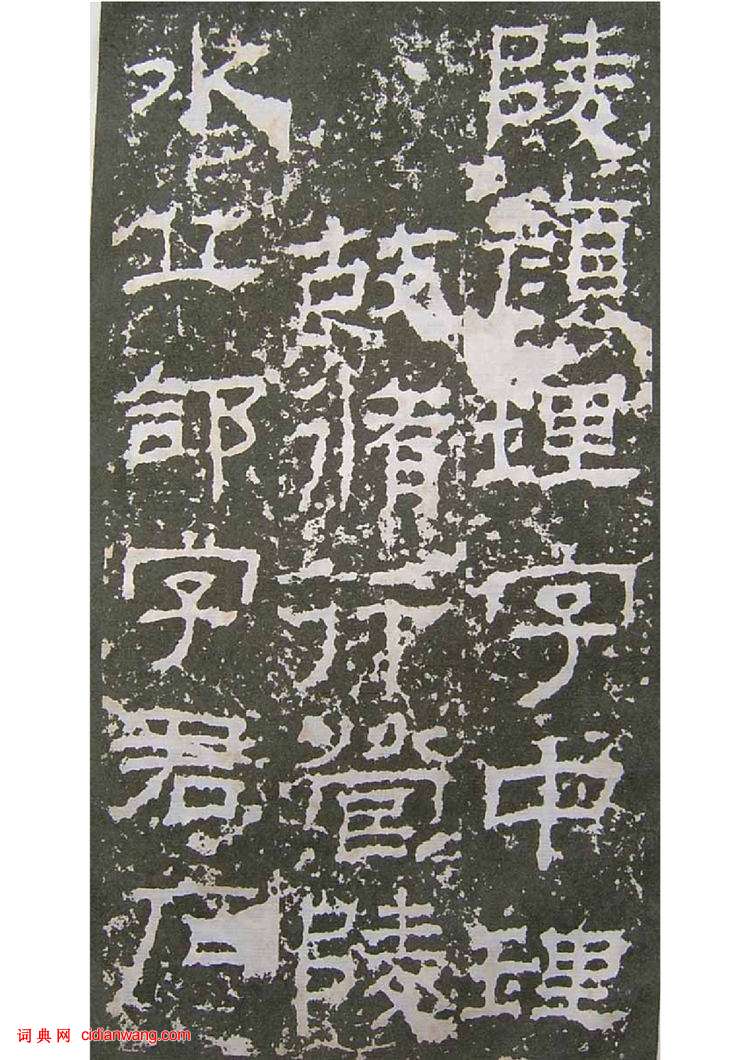 陵顏理字中理
故脩行營陵
水丘郃字君石
词典网 cidianwang.com